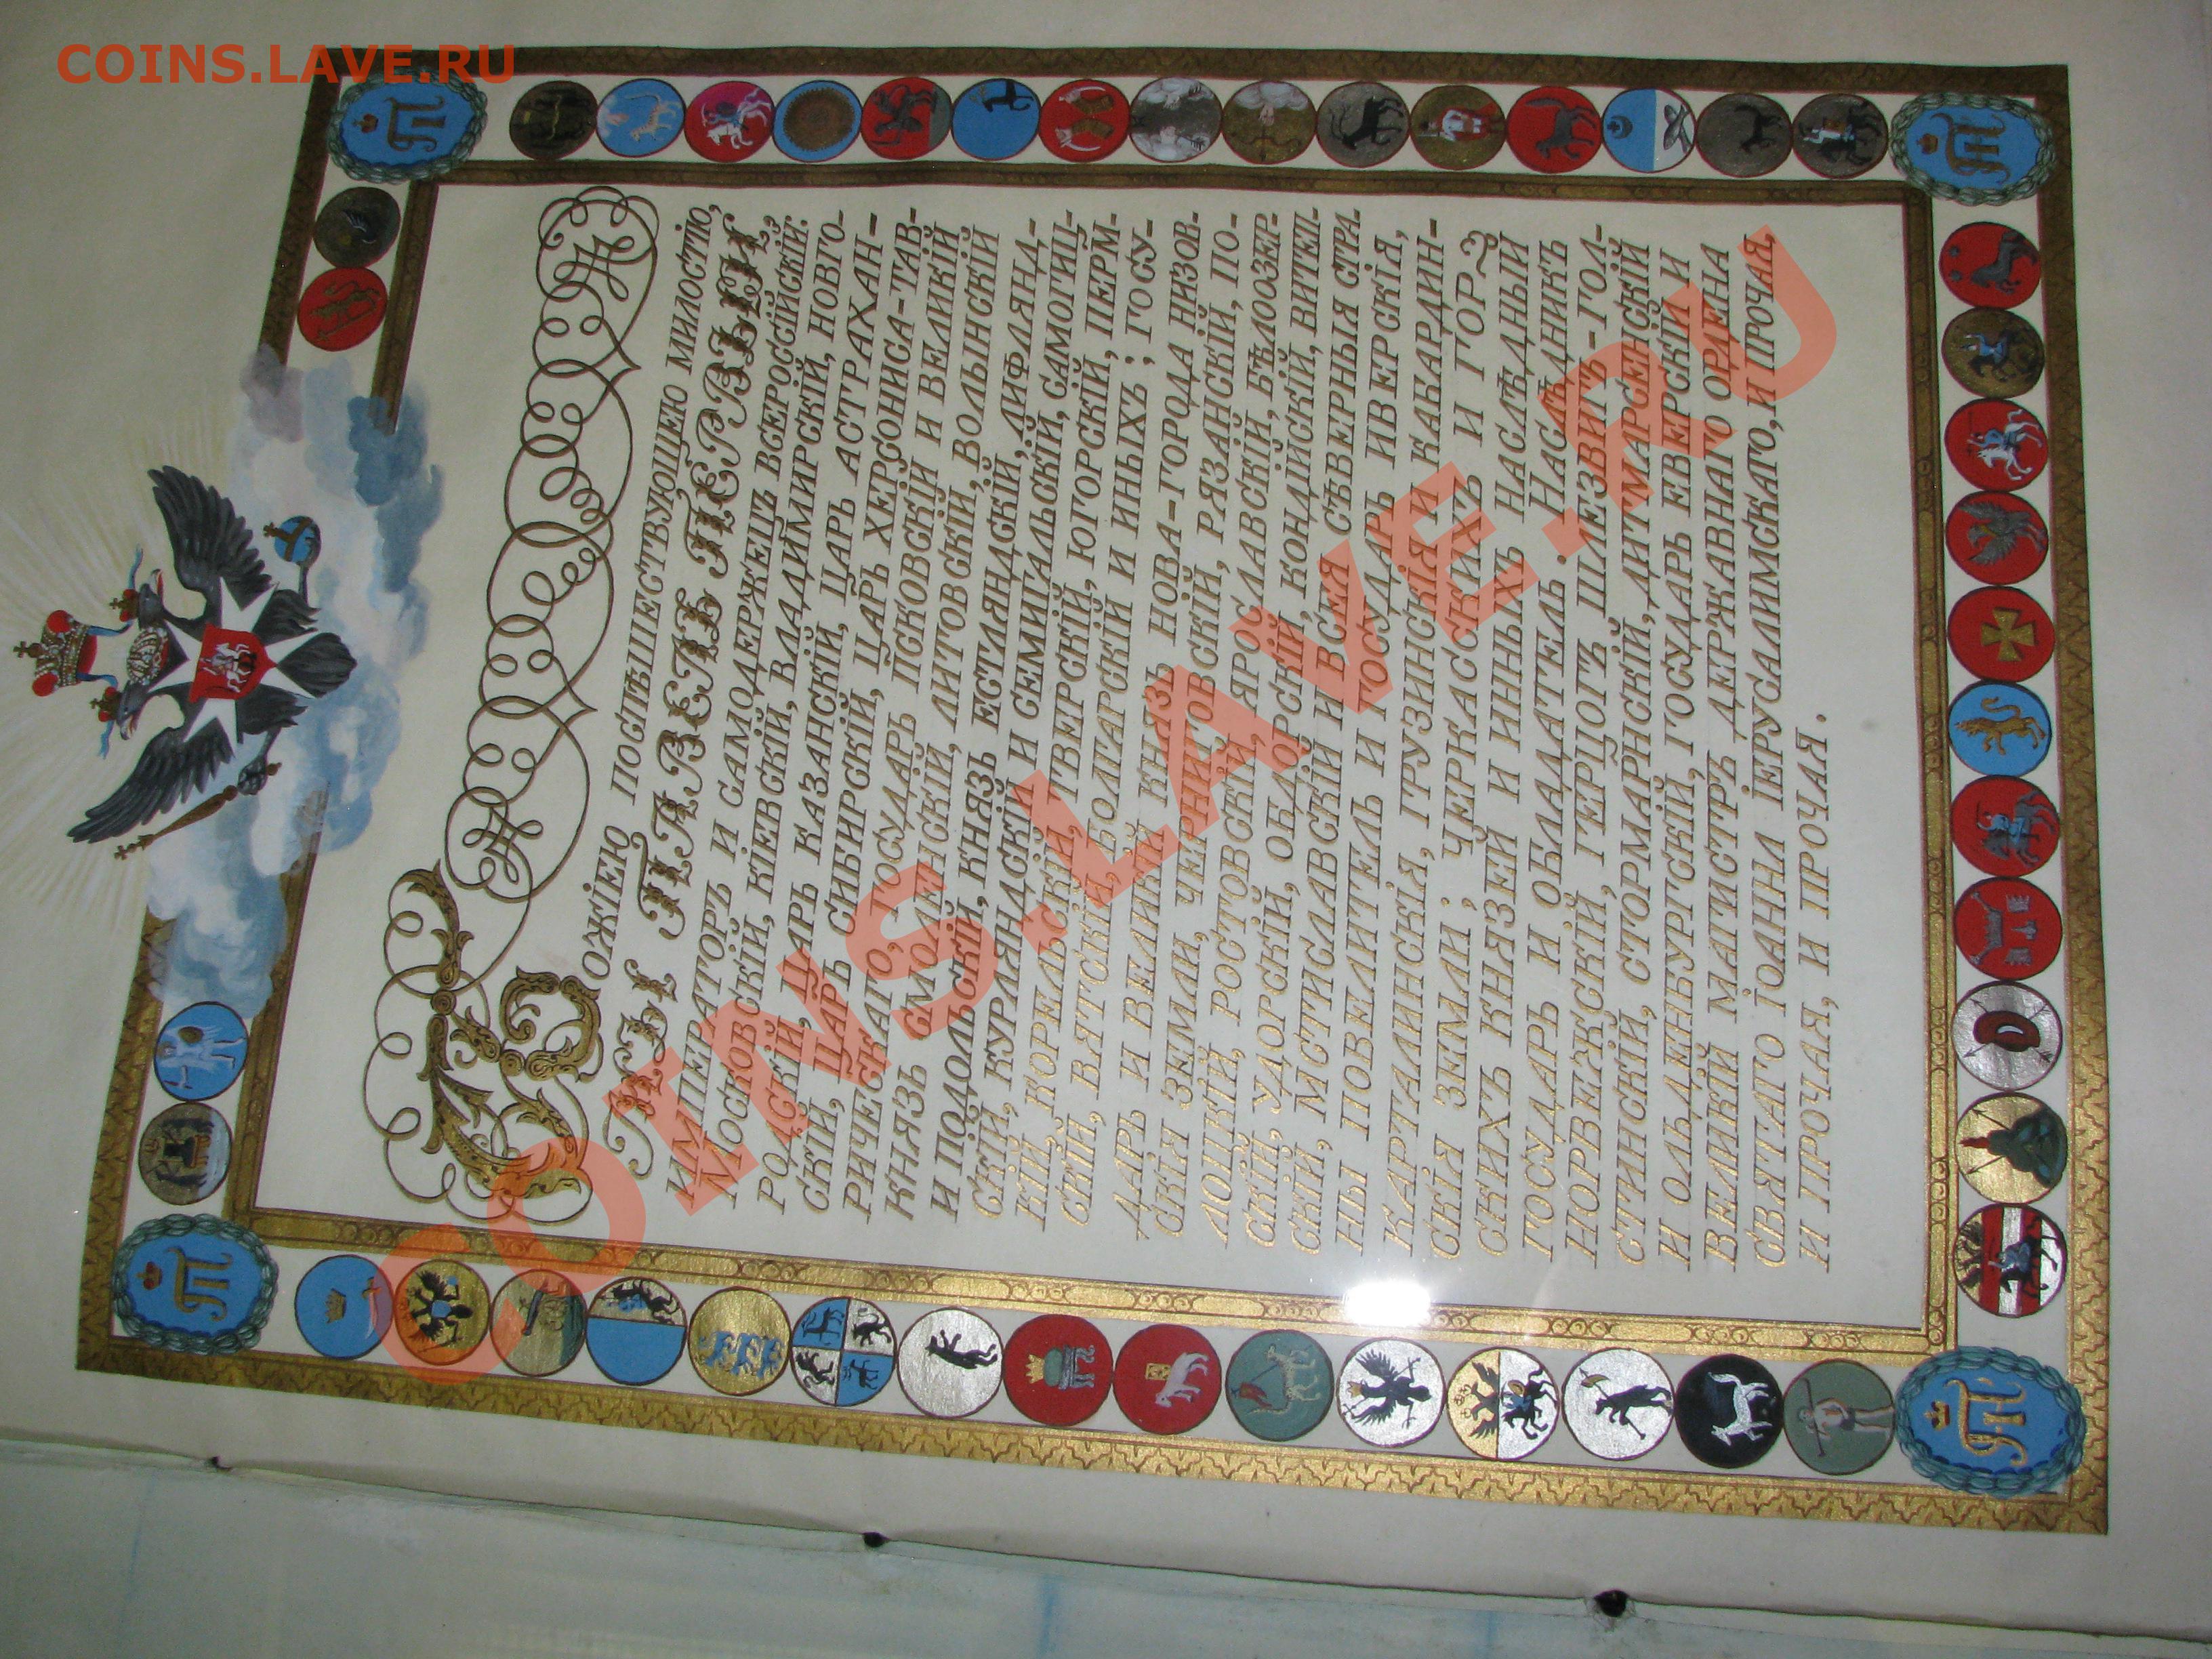 COINS.LAVE.RU
COINS.LAVE.RU
БОЖІЕЮ ПОСПѢШЕСТВУЮЩЕЮ МИЛОСТІЮ,
МЫ ПАВЕЛЪ ПЕРВЫЙ,
ИМПЕРАТОРЪ И САМОДЕРЖЕЦЪ ВСЕРОССІЙСКІЙ:
МОСКОВСКІЙ, КІЕВСКІЙ, ВЛАДИМИРСКІЙ, НОВГО-
РОДСКІЙ, ЦАРЬ КАЗАНСКІЙ, ЦАРЬ АСТРАХАН-
СКІЙ, ЦАРЬ СИБИРСКІЙ, ЦАРЬ ХЕРСОНИСА-ТАВ-
РИЧЕСКАГО, ГОСУДАРЬ ПСКОВСКІЙ И ВЕЛИКІЙ
КНЯЗЬ СМОЛЕНСКІЙ, ЛИТОВСКІЙ, ВОЛЫНСКІЙ
И ПОДОЛЬСКІЙ, КНЯЗЬ ЕСТЛЯНДСКІЙ, ЛИФЛЯНД-
СКІЙ, КУРЛЯНДСКІЙ И СЕМИГАЛЬСКІЙ, САМОГИЦ-
КІЙ, КОРЕЛЬСКІЙ, ТВЕРСКІЙ, ЮГОРСКІЙ, ПЕРМ-
СКІЙ, ВЯТСКІЙ, БОЛГАРСКІЙ И ИНЫХЪ; ГОСУ-
ДАРЬ И ВЕЛИКІЙ КНЯЗЬ НОВА-ГОРОДА НИЗОВ-
СКІЯ ЗЕМЛИ, ЧЕРНИГОВСКІЙ, РЯЗАНСКІЙ, ПО-
ЛОЦКІЙ, РОСТОВСКІЙ, ЯРОСЛАВСКІЙ, БѢЛООЗЕР-
СКІЙ, УДОРСКІЙ, ОБДОРСКІЙ, КОНДІЙСКІЙ, ВИТЕП-
СКІЙ, МСТИСЛАВСКІЙ И ВСЕЯ СѢВЕРНЫЯ СТРА-
НЫ ПОВЕЛИТЕЛЬ И ГОСУДАРЬ ИВЕРСКІЯ,
КАРТАЛИНСКІЯ, ГРУЗИНСКІЯ И КАБАРДИН-
СКІЯ ЗЕМЛИ; ЧЕРКАССКИХЪ И ГОР-
СКИХЪ КНЯЗЕЙ И ИНЫХЪ НАСЛѢДНЫЙ
ГОСУДАРЬ И ОБЛАДАТЕЛЬ. НАСЛѢДНИКЪ
НОРВЕЖСКІЙ, ГЕРЦОГЪ ШЛЕЗВИГЪ-ГОЛ-
СТИНСКІЙ, СТОРМАРНСКІЙ, ДИТМАРСЕНСКІЙ
И ОЛЬДЕНБУРГСКІЙ, ГОСУДАРЬ ЕВЕРСКІЙ И
ВЕЛИКІЙ МАГИСТРЪ ДЕРЖАВНАГО ОРДЕНА
СВЯТАГО ІОАННА ІЕРУСАЛИМСКАГО, И ПРОЧАЯ,
И ПРОЧАЯ, И ПРОЧАЯ.